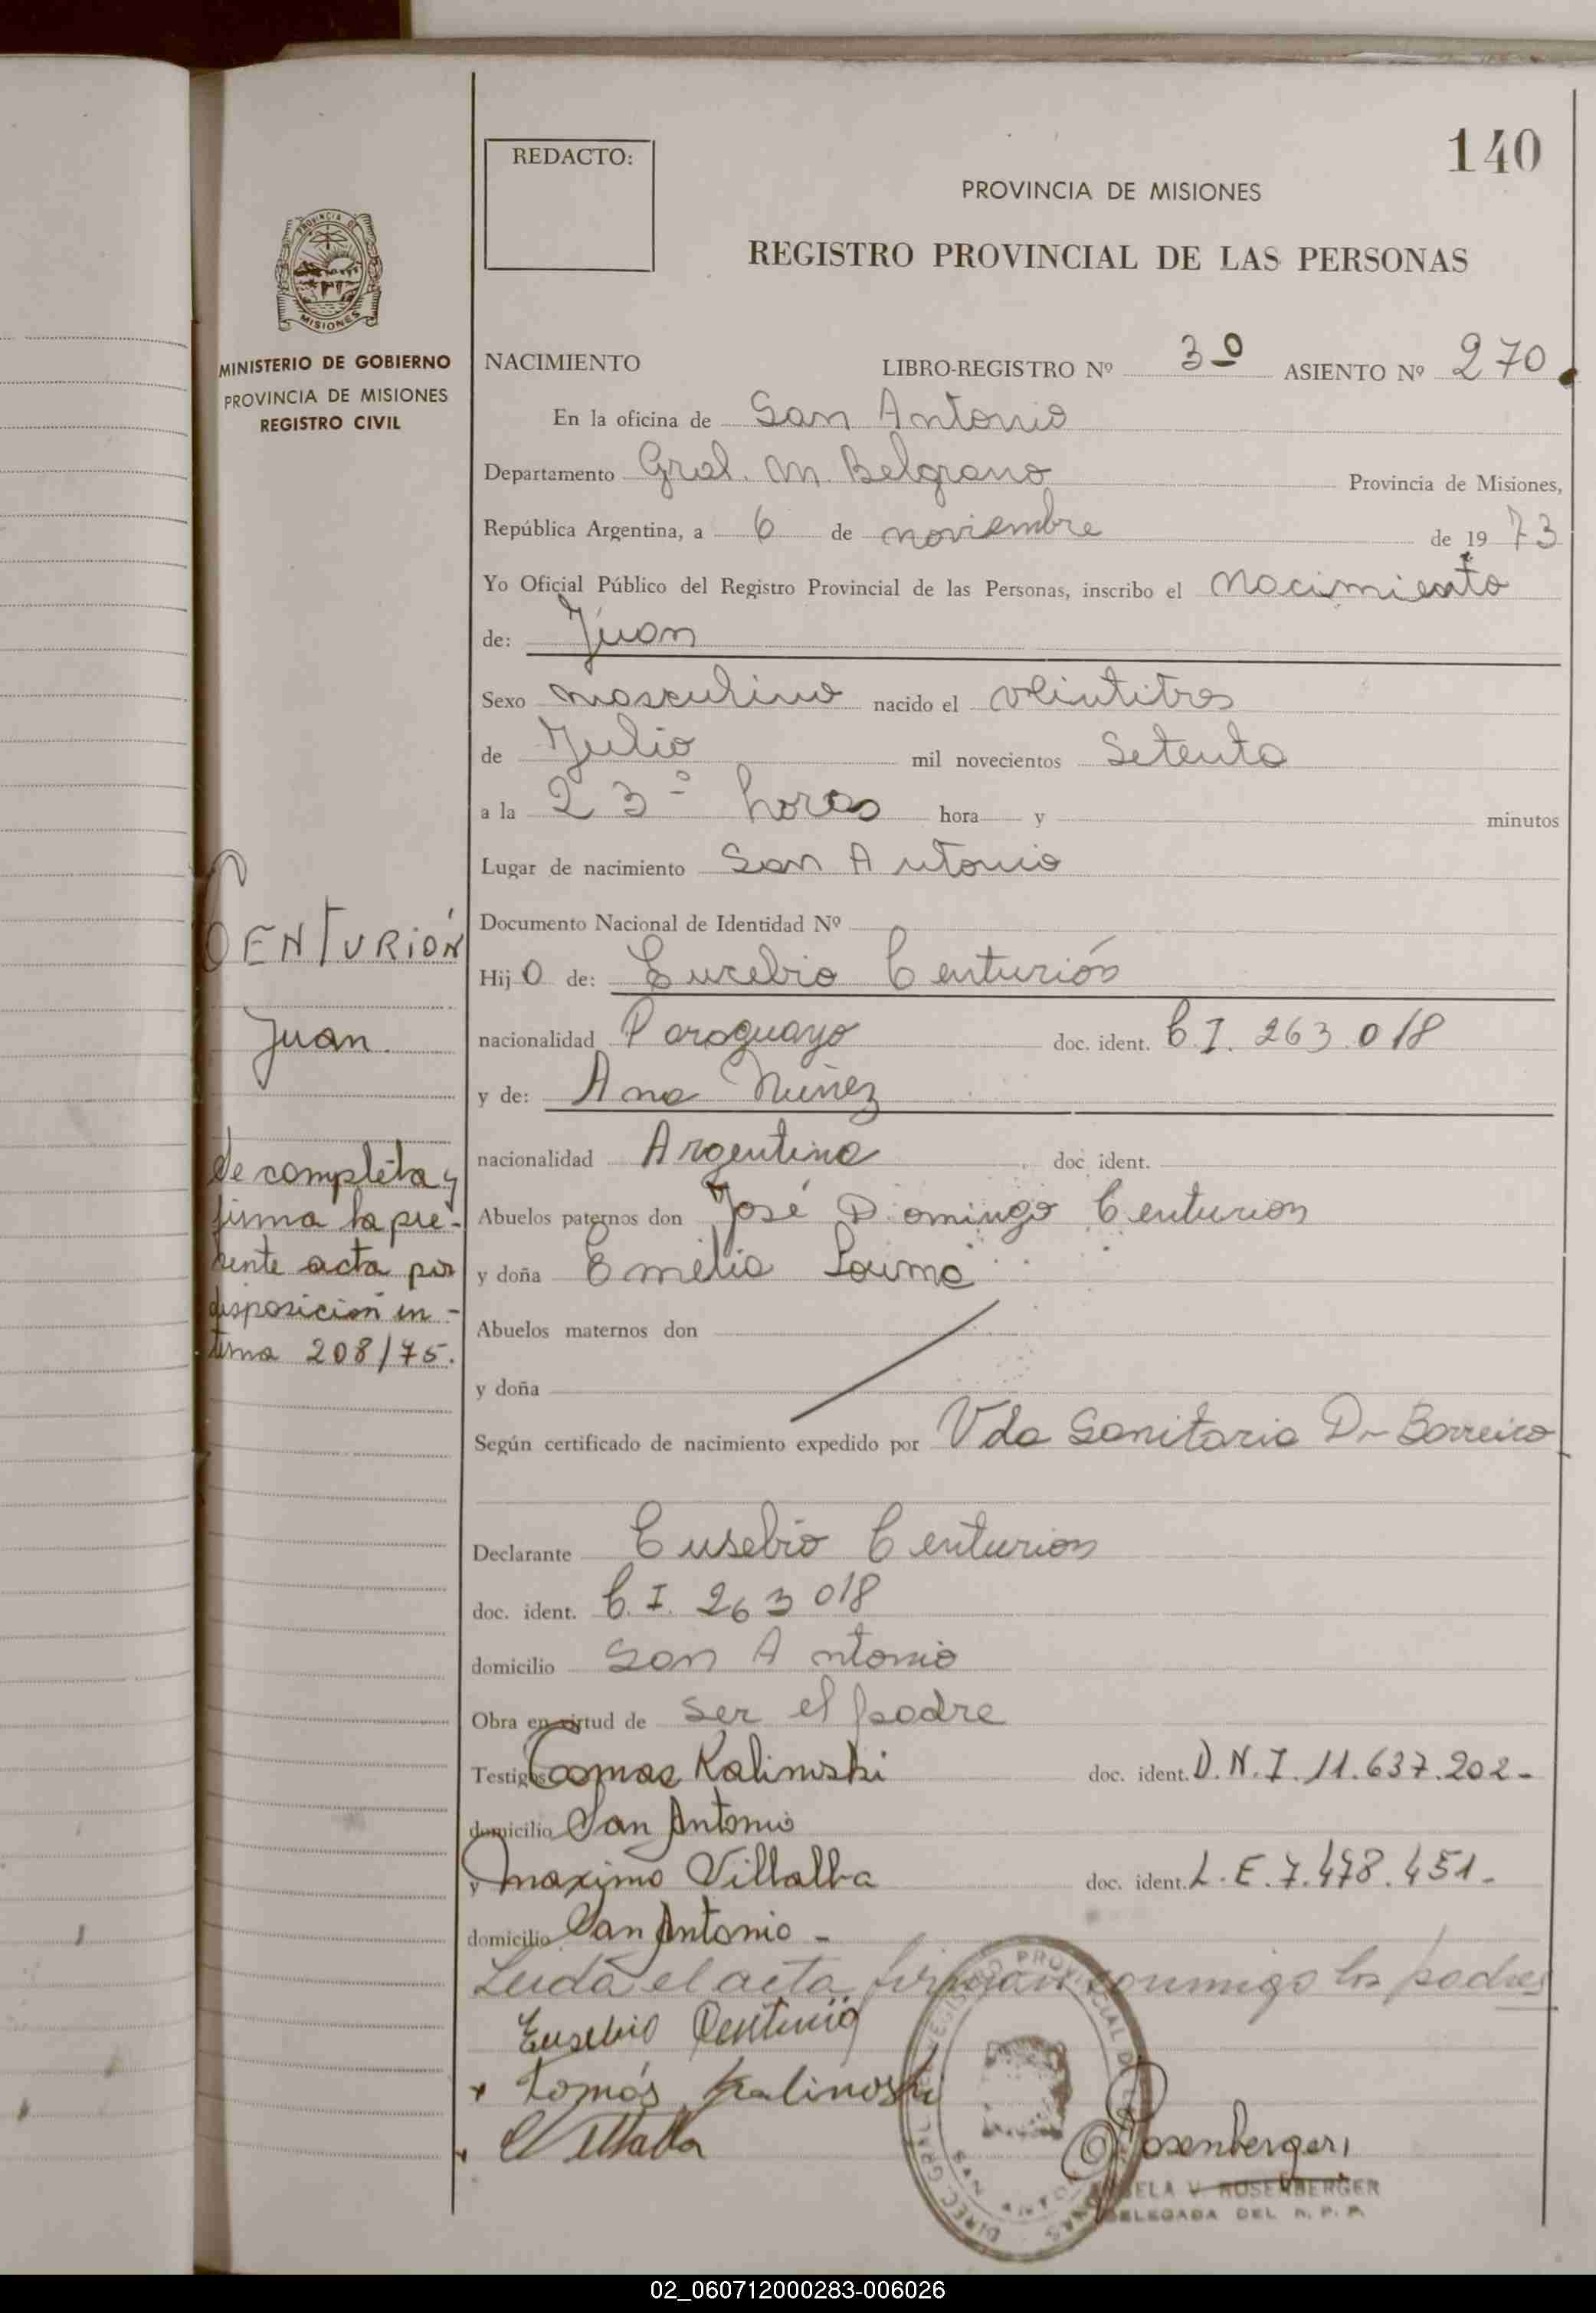 140
REDACTO:
PROVINCIA DE MISIONES
REGISTRO PROVINCIAL DE LAS PERSONAS
PROVINCIA DE
MISIONES
MINISTERIO DE GOBIERNO
PROVINCIA DE MISIONES
REGISTRO CIVIL
NACIMIENTO LIBRO-REGISTRO Nº 3º ASIENTO Nº 270
En la oficina de San Antonio
Departamento Gral. M. Belgrano Provincia de Misiones,
República Argentina, a 6 de noviembre de 1973
Yo Oficial Público del Registro Provincial de las Personas, inscribo el Nacimiento
de: Juan
Sexo masculino nacido el veintitres
de Julio mil novecientos Setenta
a la 23º horas hora y minutos
Lugar de nacimiento San Antonio
Documento Nacional de Identidad Nº
Hijo de: Eucebio Centurión
nacionalidad Paraguayo doc. ident. C.I. 263.018
y de: Ana Nuñez
nacionalidad Argentina doc. ident.
Abuelos paternos don José Domingo Centurion
y doña Emelia
Abuelos maternos don
y doña
Según certificado de nacimiento expedido por Uda Sanitaria Dr Barreiro
Declarante Eusebio Centurion
doc. ident. C.I. 263 018
domicilio San Antonio
Obra en virtud de ser el padre
Testigos Tomas Kalinoski doc. ident. D.N.I. 11.637.202-
domicilio San Antonio
y Maximo Villalba doc. ident. L.E. 7.478.451-
domicilio San Antonio -
Leida el acta firman conmigo los padres
Eusebio
Tomás Kalinoski
Villalba
Rosenberger
V. ROSENBERGER
DELEGADA DEL R. P. P.
CENTURIÓN
Juan
Se completa y
firma la pre-
sente acta por
disposición in-
terna 208/75.
02_060712000283-006026